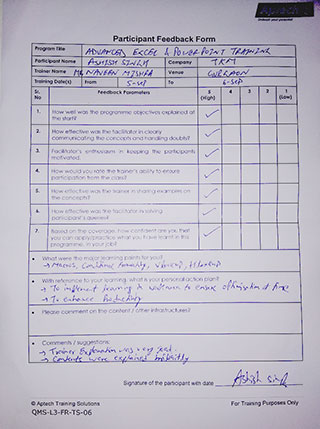 Aptech
Participant Feedback Form
Program Title ADVANCED EXCEL & POWERPOINT TRAINING
Participant Name ASHISH SINGH Company
Trainer Name Mr. NAVEEN MISHRA Venue GURGAON
Training Date(s) From 5-SEP To 6-SEP
Sr. No Feedback Parameters 5 (High) 4 3 2 1 (Low)
1. How well was the programme objectives explained at the start?
2. How effective was the facilitator in clearly communicating the concepts and handling doubts?
3. Facilitator's enthusiasm in keeping the participants motivated.
4. How would you rate the trainer's ability to ensure participation from the class?
5. How effective was the trainer in sharing examples on the concepts?
6. How effective was the facilitator in solving participant's queries?
7. Based on the coverage, how confident are you that you can apply/practice what you have learnt in this programme, in your job?
• What were the major learning points for you?
→ Macros, Conditional formatting, Vlookup, Hlookup
• With reference to your learning, what is your personal action plan?
→ To implement learning in
→ To enhance
• Please comment on the content / other infrastructures?
• Comments / suggestions:
→ Trainer Explanation was very good.
→ Contents were explained explicitly
Signature of the participant with date Ashish Singh
© Aptech Training Solutions For Training Purposes Only
QMS-L3-FR-TS-06